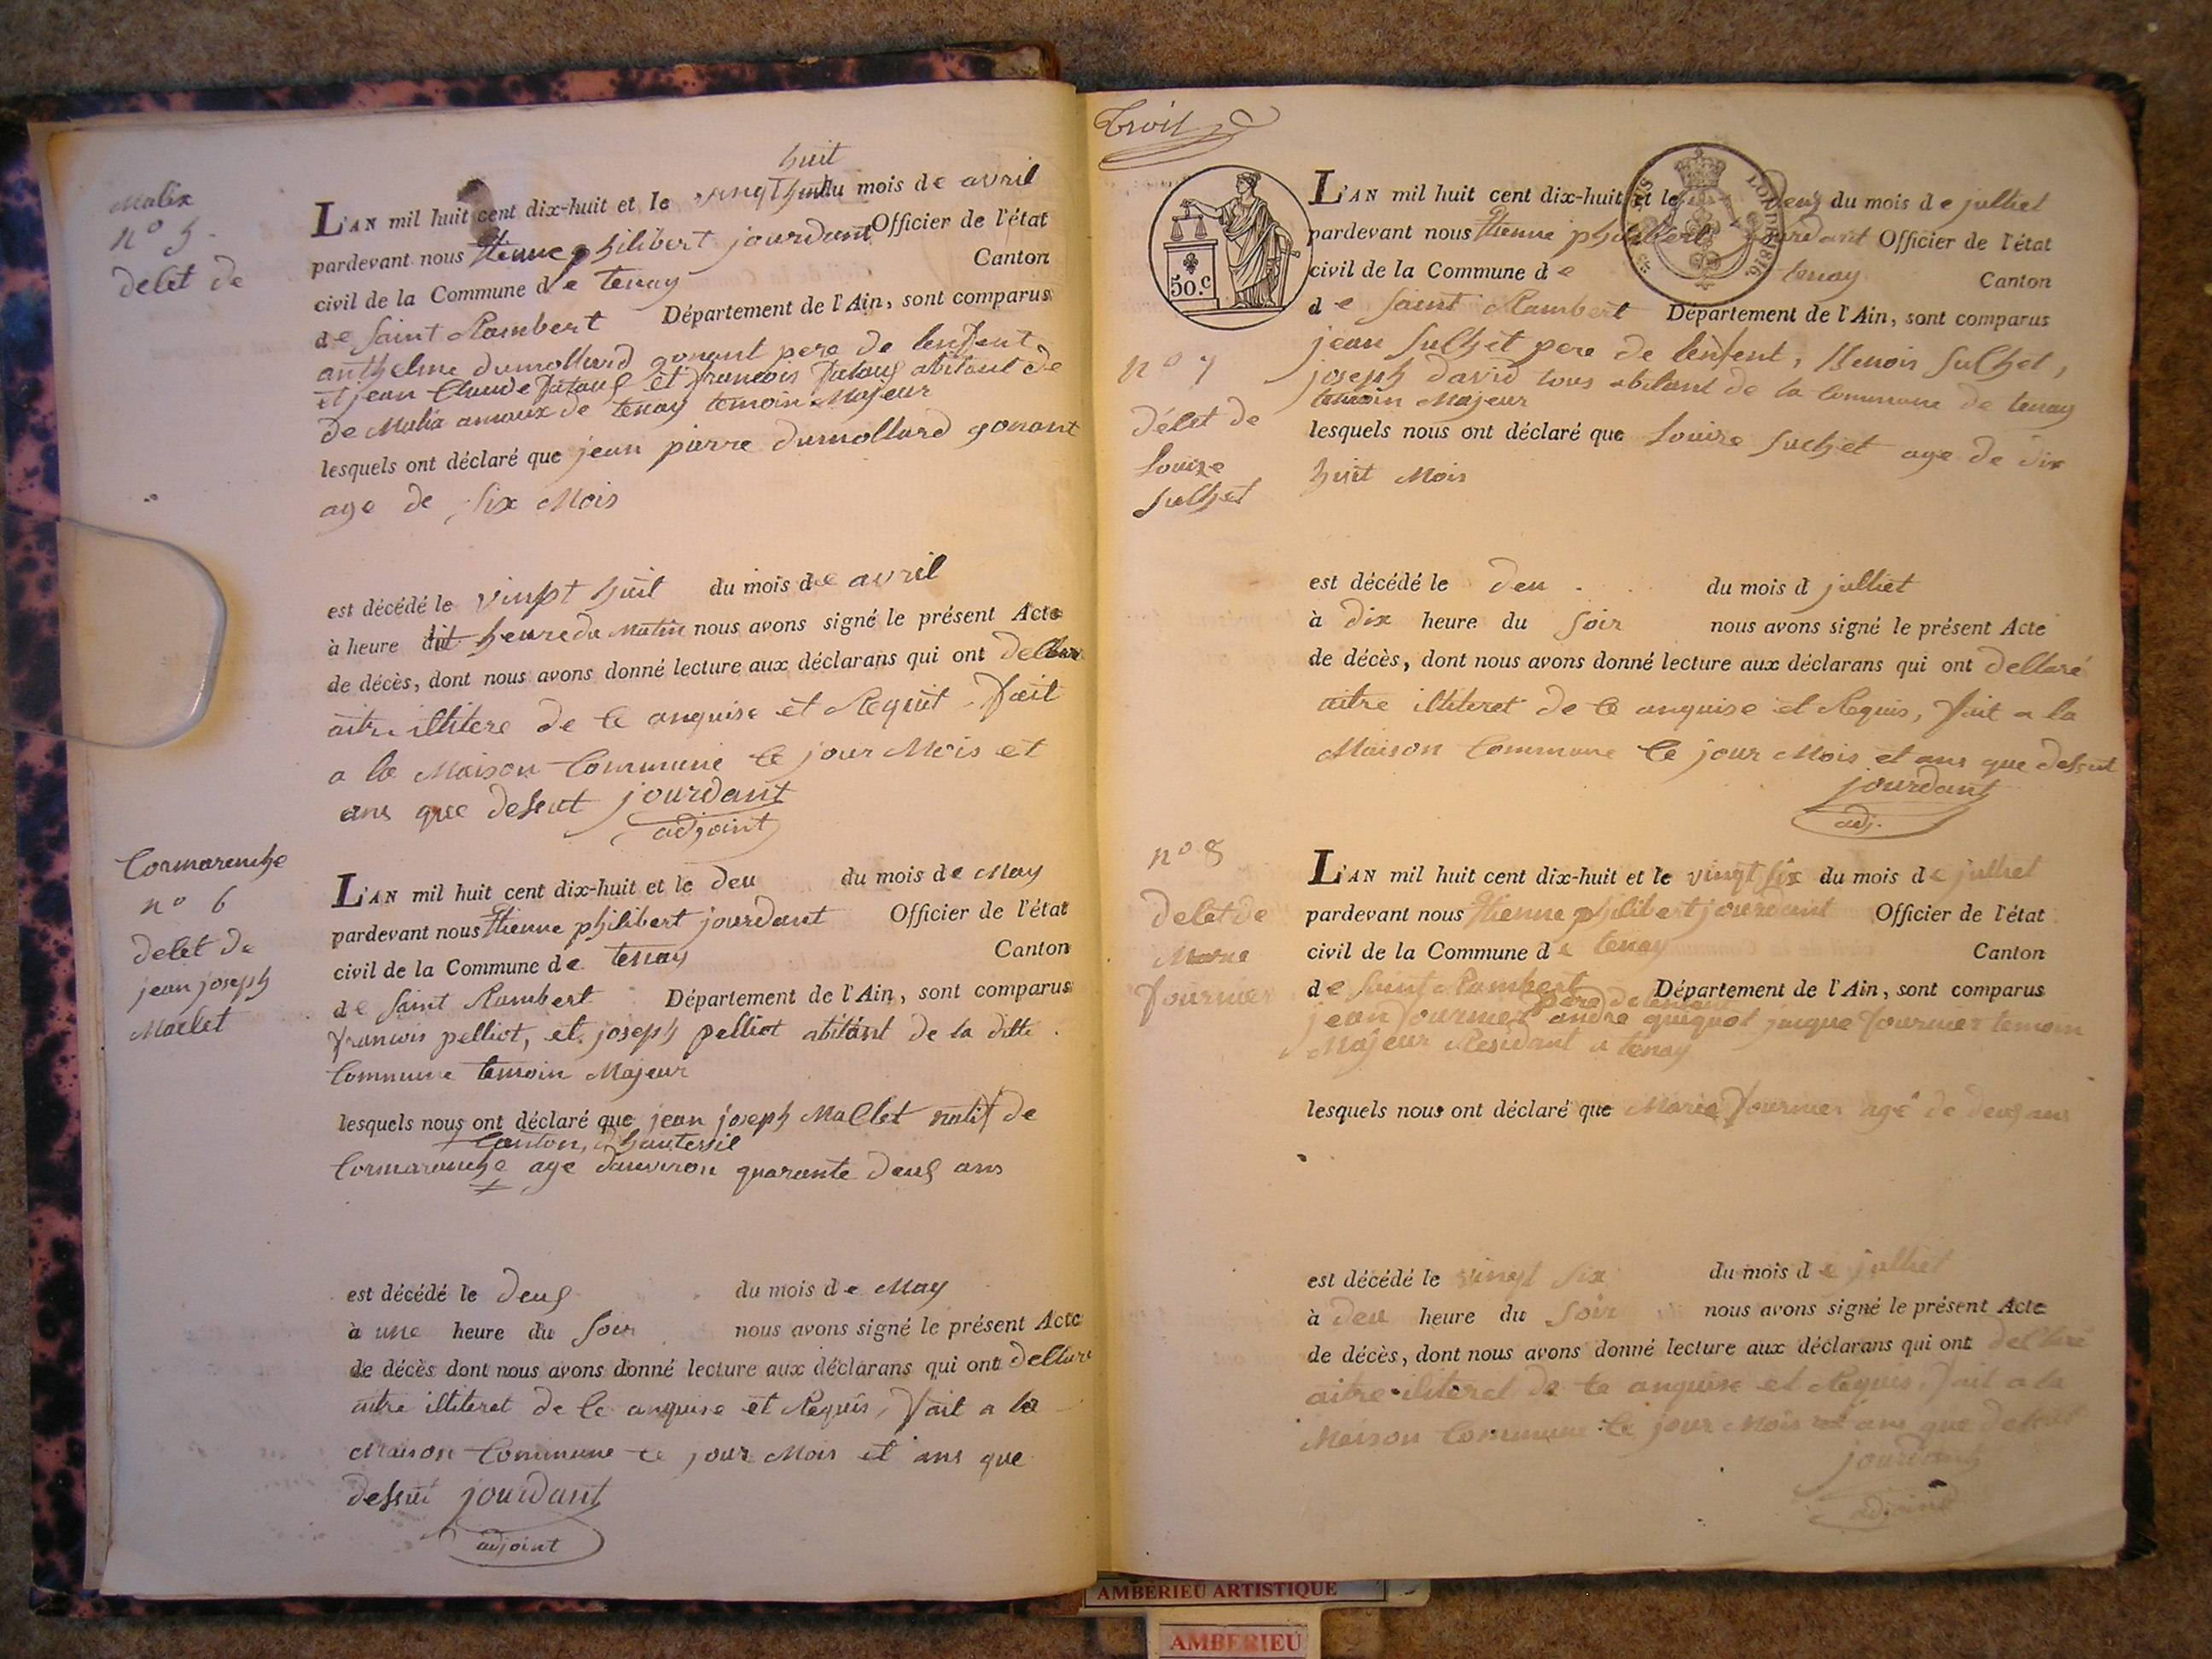 Malix
n° 5.
delet de
huit
L'AN mil huit cent dix-huit et le vingt huit du mois de avril
pardevant nous Etienne philibert jourdant Officier de l'état
civil de la Commune de tenay Canton
de Saint Rambert Département de l'Ain, sont comparus
anthelme dumollard gonant pere de lenfent
et jean Claude et francois abitant de
de Malix amaux de tenay temoin Majeur
lesquels ont déclaré que jean pierre dumollard gonant
age de Six Mois
est décédé le vingt huit du mois de avril
à heure dit heure du Matin nous avons signé le présent Acte
de décès, dont nous avons donné lecture aux déclarans qui ont dellare
aitre illitere de ce anquise et Requit fait
a la Maison Commune ce jour Mois et
ans que desut jourdant
adjoint
Cormarenche
n° 6
delet de
jean joseph
Maclet
L'AN mil huit cent dix-huit et le deu du mois de May
pardevant nous Etienne philibert jourdant Officier de l'état
civil de la Commune de tenay Canton
de Saint Rambert Département de l'Ain, sont comparus
francois pelliot, et joseph pelliot abitant de la ditte
Commune temoin Majeur
lesquels nous ont déclaré que jean joseph Maclet natif de
Canton, d'hautevile
Cormaranche age danviron quarante deus ans
est décédé le deus du mois de May
à une heure du Soir nous avons signé le présent Acte
de décès dont nous avons donné lecture aux déclarans qui ont dellare
aitre illiteret de ce anquise et Requis, fait a la
Maison Commune ce jour Mois et ans que
dessut jourdant
adjoint
Trois
50.c
LOUIS 1816
L'AN mil huit cent dix-huit et le deus du mois de julliet
pardevant nous Etienne philibert jourdant Officier de l'état
civil de la Commune de tenay Canton
de Saint Rambert Département de l'Ain, sont comparus
n° 7
délet de
Louise
Suchet
jean Suchet pere de lenfent, Benoir Suchet,
joseph david tous abitant de la Commune de tenay
temoin Majeur
lesquels nous ont déclaré que Louise Suchet age de dix
huit Mois
est décédé le deu du mois d julliet
à dix heure du Soir nous avons signé le présent Acte
de décès, dont nous avons donné lecture aux déclarans qui ont dellaré
aitre illiteret de ce anquise et Requis, fait a la
Maison Commune ce jour Mois et ans que dessut
jourdant
adj.
n° 8
delet de
Marie
fournier
L'AN mil huit cent dix-huit et le vingt six du mois de julliet
pardevant nous Etienne philibert jourdant Officier de l'état
civil de la Commune de tenay Canton
de Saint Rambert Département de l'Ain, sont comparus
pere de lenfent
jean fournier andré quiquot jacque fournier temoin
Majeur Residant a tenay
lesquels nous ont déclaré que Marie fournier agé de deus ans
est décédé le vingt six du mois de julliet
à deu heure du Soir nous avons signé le présent Acte
de décès, dont nous avons donné lecture aux déclarans qui ont dellaré
aitre iliteret de ce anquise et Requis, fait a la
Maison Commune ce jour Mois et ans que dessut
jourdant
adjoint
AMBERIEU ARTISTIQUE
AMBERIEU